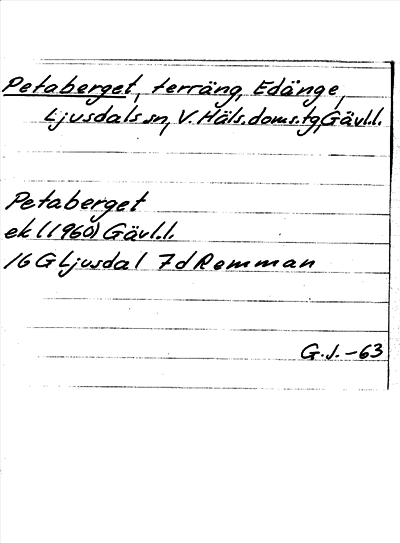 Petaberget, terräng, Edänge,
Ljusdals sn, V. Häls. doms.tg, Gävl.l.
Petaberget
ek (1960) Gävl.l.
16 G Ljusdal 7d Remman
G.J.-63